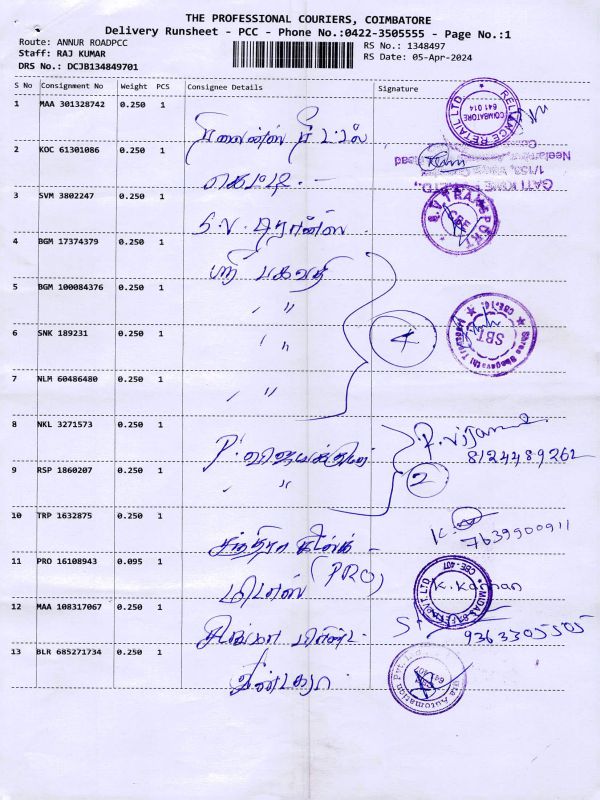 THE PROFESSIONAL COURIERS, COIMBATORE
Delivery Runsheet - PCC - Phone No.:0422-3505555 - Page No.:1
Route: ANNUR ROADPCC
RS No.: 1348497
Staff: RAJ KUMAR
RS Date: 05-Apr-2024
DRS No.: DCJB134849701
S No Consignment No Weight PCS Consignee Details Signature
1 MAA 301328742 0.250 1
RELIANCE RETAIL LTD
COIMBATORE
641 014
ரிலையன்ஸ் ரீட்டல்
2 KOC 61301086 0.250 1
GATI
1/153,
கெட்டி
3 SVM 3802247 0.250 1
S.V. TRANSPORT
CBE
S.V. டிரான்ஸ்
4 BGM 17374379 0.250 1
ஸ்ரீ பகவதி
5 BGM 100084376 0.250 1
〃
4
Shree Bhagavathi
SBT
6 SNK 189231 0.250 1
〃
7 NLM 60486480 0.250 1
〃
8 NKL 3271573 0.250 1
P. விஜயக்குமார்
8124489262
9 RSP 1860207 0.250 1
〃
2
10 TRP 1632875 0.250 1
7639900911
11 PRO 16108943 0.095 1
(PRO)
K. Kannan
CBE - 407
12 MAA 108317067 0.250 1
9363305505
13 BLR 685271734 0.250 1
Automation Pvt.